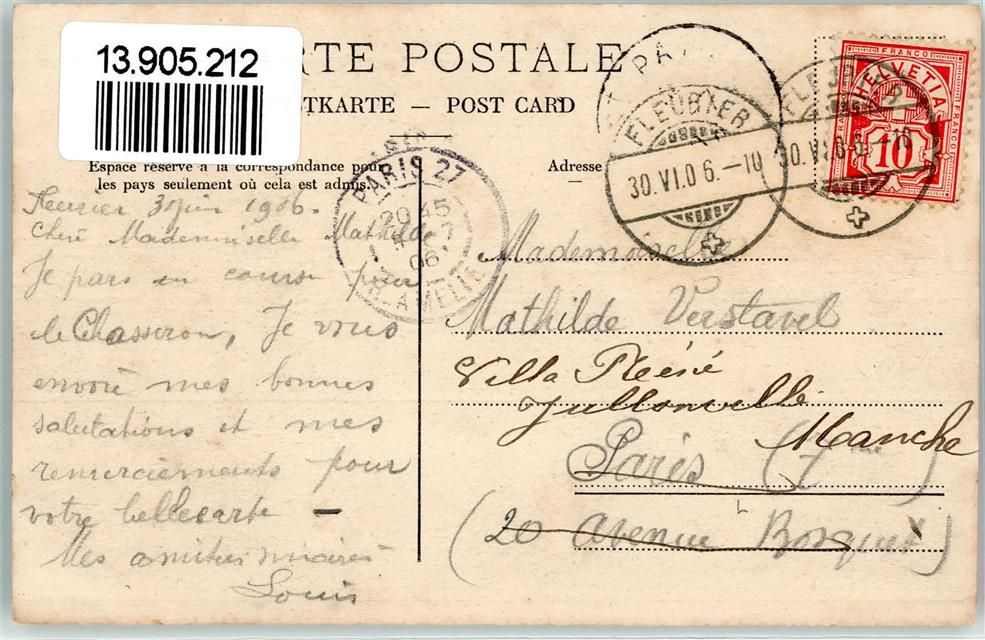 13.905.212
RTE POSTALE
STKARTE — POST CARD
Espace réservé à la correspondance pour
les pays seulement où cela est admis.
Adresse
PARIS 27
20 45
06
R. AMELIE
PA
FLEURIER
30.VI.06.—10
FLEUR
30.VI.06.—10
FRANCO
HELVETIA
FRANCO
FRANCO
10
Fleurier 30 juin 1906.
Chère Mademoiselle Mathilde
Je pars en course pour
le Chasseron, Je vous
envoie mes bonnes
salutations et mes
remerciements pour
votre belle carte —
Mes amitiés
Louis
Mademoiselle
Mathilde Verstavel
Villa Réné
Jullonville
Manche
Paris (7me)
(20 avenue Bosquet)